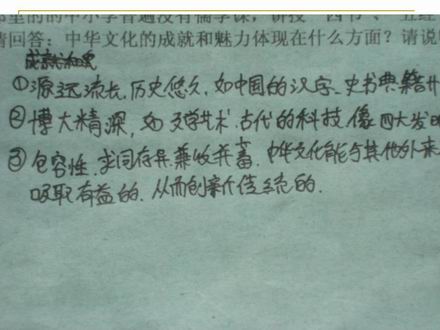 的中小学普遍没有儒学课，讲授“四书”、“五经
请回答：中华文化的成就和魅力体现在什么方面？请说
①源远流长，历史悠久，如中国的汉字、史书典籍
②博大精深，如文学艺术、古代的科技，像四大发明
③包容性，求同存异、兼收并蓄，中华文化能与其他外来
吸取有益的，从而创新传统的．